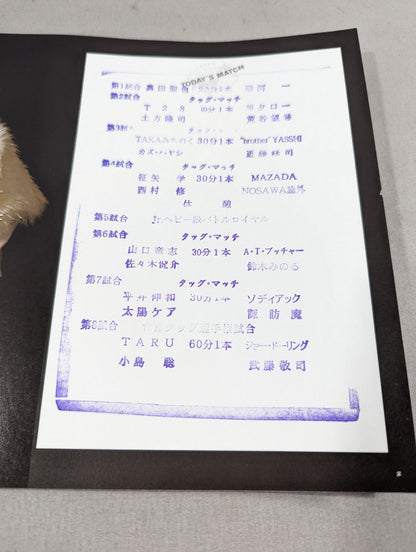 TODAY'S MATCH
第1試合 真田聖也 20分1本 一
第2試合 タッグ・マッチ
T28 30分1本
土方隆司 荒谷望誉
第3試 タッグ・マッチ
TAKAみちのく 30分1本 "brother"YASSHI
カズ・ハヤシ 近藤修司
第4試合 タッグ・マッチ
征矢 学 30分1本 MAZADA
西村 修 NOSAWA論外
休 憩
第5試合 Jr.ヘビー級バトルロイヤル
第6試合 タッグ・マッチ
山口竜志 30分1本 A・T・ブッチャー
佐々木健介 鈴木みのる
第7試合 タッグ・マッチ
平井伸和 30分1本 ゾディアック
太陽ケア 諏訪魔
第8試合 世界タッグ選手権試合
TARU 60分1本 ジョー・ドーリング
小島 聡 武藤敬司